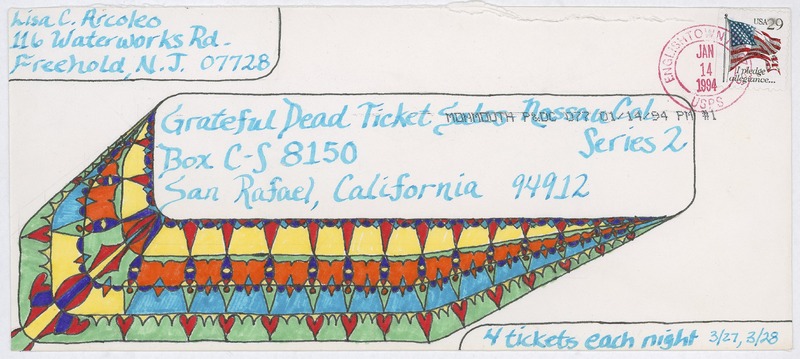 Lisa C. Arcoleo
116 Waterworks Rd.
Freehold, N.J. 07728
USA 29
I pledge
allegiance...
ENGLISHTOWN
JAN
14
1994
USPS
Grateful Dead Ticket Sales Nassau Col.
MONMOUTH P&DC 077 01/14/94 PM #1
Series 2
Box C-S 8150
San Rafael, California 94912
4 tickets each night 3/27, 3/28